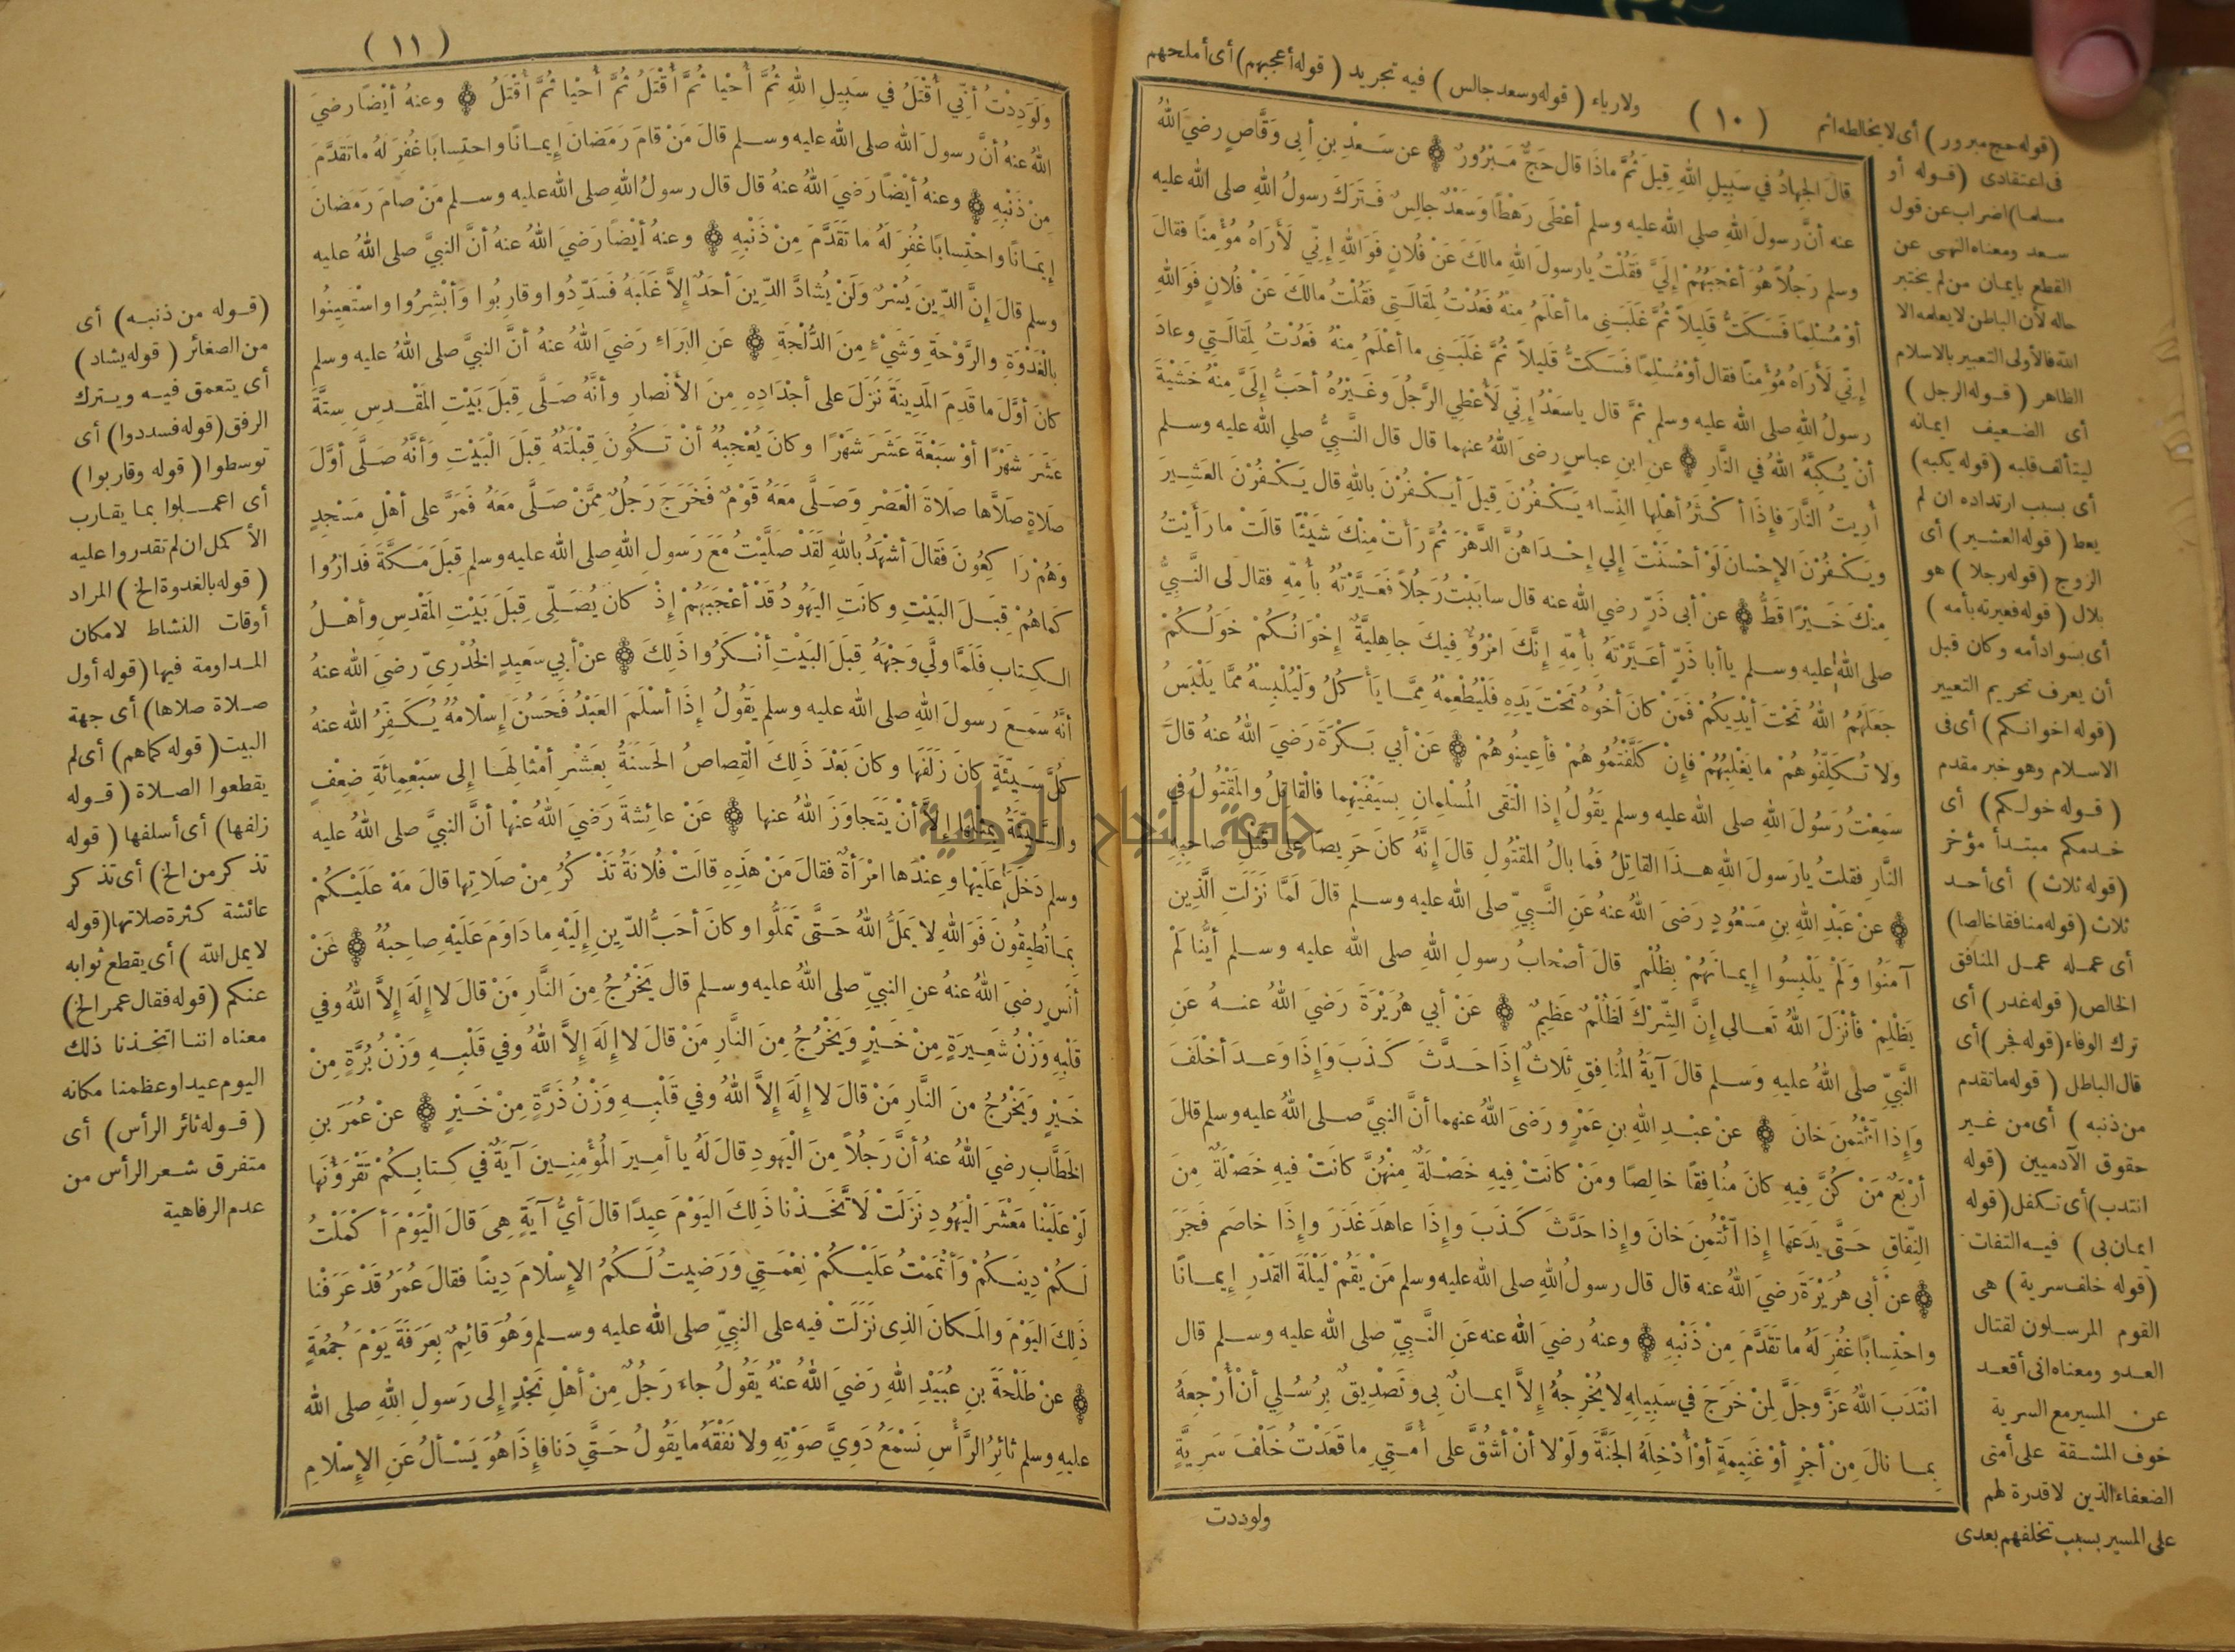 (١٠)
ولارياء (قوله وسعد جالس) فيه تجريد (قوله أعجبهم) أى أملحهم
قالَ الجِهادُ في سَبِيلِ اللهِ قِيلَ ثُمَّ ماذَا قال حَجٌّ مَبْرُورٌ ۞ عن سَعْدِ بنِ أبِى وَقَّاصٍ رضيَ اللهُ
عنه أنَّ رسولَ اللهِ صلى الله عليه وسلم أعْطَى رَهْطًا وَسَعْدٌ جالِسٌ فَتَرَكَ رسولُ اللهِ صلى الله عليه
وسلم رَجُلاً هُوَ أعْجَبُهُمْ إِلَيَّ فَقُلْتُ يارسولَ اللهِ مالَكَ عَنْ فُلانٍ فَوَاللهِ إِنِّي لَأَرَاهُ مُؤْمِنًا فقالَ
أوْ مُسْلِمًا فَسَكَتُّ قَلِيلاً ثُمَّ غَلَبَنِى ما أعْلَمُ مِنْهُ فَعُدْتُ لِمَقالَتِى فَقُلْتُ مالَكَ عَنْ فُلانٍ فَوَاللهِ
إِنِّي لَأَرَاهُ مُؤْمِنًا فقال أوْ مُسْلِمًا فَسَكَتُّ قَلِيلاً ثُمَّ غَلَبَنِى ما أعْلَمُ مِنْهُ فَعُدْتُ لِمَقالَتِي وعادَ
رسولُ اللهِ صلى الله عليه وسلم ثمَّ قال ياسَعْدُ إِنِّي لَأُعْطِي الرَّجُلَ وغَيْرُهُ أحَبُّ إِلَيَّ مِنْهُ خَشْيَةَ
أنْ يُكِبَّهُ اللهُ في النَّارِ ۞ عنِ ابنِ عباسٍ رضىَ اللهُ عنهما قال قال النَّبِيُّ صلى الله عليه وسلم
أُرِيتُ النَّارَ فإِذَا أكْثَرُ أهْلِها النِّساءُ يَكْفُرْنَ قِيلَ أيَكْفُرْنَ باللهِ قال يَكْفُرْنَ العَشِيرَ
ويَكْفُرْنَ الإِحْسانَ لَوْ أحْسَنْتَ إِلي إِحْدَاهُنَّ الدَّهْرَ ثمَّ رَأتْ مِنْكَ شَيْئًا قالَتْ ما رَأيْتُ
مِنْكَ خَيْرًا قَطُّ ۞ عنْ أبى ذَرٍّ رضي الله عنه قال سابَبْتُ رَجُلاً فَعَيَّرْتُهُ بأُمِّهِ فقال لى النَّبِيُّ
صلى اللهُ عليه وسلم ياأبا ذَرٍّ أعَيَّرْتَهُ بأُمِّهِ إِنَّكَ امْرُؤٌ فِيكَ جاهِلِيَّةٌ إِخْوَانُكُمْ خَوَلُكُمْ
جَعَلَهُمُ اللهُ تَحْتَ أيْدِيكُمْ فَمَنْ كانَ أخُوهُ تَحْتَ يَدِهِ فَلْيُطْعِمْهُ مِمَّا يَأْكُلُ وَلْيُلْبِسْهُ مِمَّا يَلْبَسُ
ولا تُكَلِّفُوهُمْ ما يَغْلِبُهُمْ فإِنْ كَلَّفْتُمُوهُمْ فأعِينُوهُمْ ۞ عَنْ أبي بَكْرَةَ رَضيَ اللهُ عنهُ قالَ
سَمِعْتُ رَسُولَ اللهِ صلى الله عليه وسلم يَقُولُ إِذا الْتَقَى المُسْلِمانِ بِسَيْفَيْهِما فالْقاتِلُ والمَقْتُولُ في
النَّارِ فقلتُ يارَسولَ اللهِ هذَا القاتِلُ فَما بالُ المَقْتُولِ قالَ إِنَّهُ كانَ حَرِيصًا علَى قَتْلِ صاحِبِهِ
۞ عنْ عَبْدِ اللهِ بنِ مَسْعُودٍ رَضىَ اللهُ عنهُ عَنِ النَّبيِّ صلى الله عليه وسلم قالَ لَمَّا نَزَلَتِ الَّذِين
آمَنُوا وَلَمْ يَلْبِسُوا إِيمانَهُمْ بِظُلْمٍ قالَ أصْحابُ رسولِ اللهِ صلى الله عليه وسلم أيُّنا لَمْ
يَظْلِمْ فأنْزَلَ اللهُ تَعالى إِنَّ الشِّرْكَ لَظُلْمٌ عَظِيمٌ ۞ عَنْ أبي هُرَيْرَةَ رَضيَ اللهُ عنهُ عَنِ
النَّبيِّ صلى اللهُ عليهِ وَسلم قالَ آيَةُ المُنافِقِ ثَلاثٌ إِذَا حَدَّثَ كَذَبَ وَإِذَا وَعَدَ أخْلَفَ
وَإِذا آئْتُمِنَ خانَ ۞ عنْ عبْدِ اللهِ بنِ عَمْرٍو رَضىَ اللهُ عنهما أنَّ النبيَّ صلى اللهُ عليه وسلم قالَ
أرْبَعٌ مَنْ كُنَّ فِيهِ كانَ مُنافِقًا خالِصًا ومَنْ كانَتْ فِيهِ خَصْلَةٌ مِنْهُنَّ كانَتْ فيهِ خَصْلَةٌ مِنَ
النِّفاقِ حَتَّى يَدَعَها إِذا آئْتُمِنَ خانَ وإِذا حدَّثَ كَذَبَ وإِذَا عاهَدَ غَدَرَ وإِذَا خاصَم فَجَرَ
۞ عنْ أبى هُرَيْرَةَ رَضيَ اللهُ عنه قال قال رسولُ اللهِ صلى الله عليه وسلم مَنْ يَقُمْ لَيْلَةَ القَدْرِ إِيمانًا
واحْتِسابًا غُفِرَ لَهُ ما تَقَدَّمَ مِنْ ذَنْبِهِ ۞ وعنهُ رضيَ الله عنه عَنِ النَّبيِّ صلى الله عليه وسلم قال
انْتَدَبَ اللهُ عَزَّ وجَلَّ لِمنْ خَرَجَ في سَبِيلِهِ لا يُخْرِجُهُ إِلاَّ ايمانٌ بِى وتَصْدِيقٌ بِرُسُلِي أنْ أُرْجِعَهُ
بِما نالَ مِنْ أجْرٍ أوْ غَنِيمَةٍ أوْ أُدْخِلَهُ الجَنَّةَ ولَوْلا أنْ أشُقَّ على أُمَّتِي ما قَعَدْتُ خَلْفَ سَرِيَّةٍ
ولوددت
(قوله حج مبرور) أى لا يخالطه اثم
فى اعتقادى (قوله أو
مسلما) اضراب عن قول
سعد ومعناه النهى عن
القطع بايمان من لم يختبر
حاله لأن الباطن لا يعلمه الا
الله فالأولى التعبير بالاسلام
الظاهر (قوله الرجل)
أى الضعيف ايمانه
ليتألف قلبه (قوله يكبه)
أى بسبب ارتداده ان لم
يعط (قوله العشير) أى
الزوج (قوله رجلا) هو
بلال (قوله فعيرته بأمه)
أى بسواد أمه وكان قبل
أن يعرف تحريم التعيير
(قوله اخوانكم) أى فى
الاسلام وهو خبر مقدم
(قوله خولكم) أى
خدمكم مبتدأ مؤخر
(قوله ثلاث) أى أحد
ثلاث (قوله منافقا خالصا)
أى عمله عمل المنافق
الخالص (قوله غدر) أى
ترك الوفاء (قوله فجر) أى
قال الباطل (قوله ما تقدم
من ذنبه) أى من غير
حقوق الآدميين (قوله
انتدب) أى تكفل (قوله
ايمان بى) فيه التفات
(قوله خلف سرية) هى
القوم المرسلون لقتال
العدو ومعناه انى أقعد
عن المسير مع السرية
خوف المشقة على أمتى
الضعفاء الذين لا قدرة لهم
على المسير بسبب تخلفهم بعدى
(١١)
ولَوَدِدْتُ أنِّي أُقْتَلُ في سَبِيلِ اللهِ ثُمَّ أُحْيا ثُمَّ أُقْتَلُ ثُمَّ أُحْيا ثُمَّ أُقْتَلُ ۞ وعنهُ أيْضًا رضيَ
اللهُ عنهُ أنَّ رسولَ اللهِ صلى الله عليه وسلم قالَ مَنْ قامَ رَمَضانَ إِيمانًا واحتِسابًا غُفِرَ لهُ ما تَقَدَّمَ
مِنْ ذَنْبِهِ ۞ وعنهُ أيْضًا رَضيَ اللهُ عنهُ قال قال رسولُ اللهِ صلى الله عليه وسلم مَنْ صامَ رَمَضانَ
إِيمَانًا واحْتِسابًا غُفِرَ لَهُ ما تَقَدَّمَ مِنْ ذَنْبِهِ ۞ وعنهُ أيْضًا رَضيَ اللهُ عنهُ أنَّ النبيَّ صلى اللهُ عليه
وسلم قالَ إِنَّ الدِّينَ يُسْرٌ وَلَنْ يُشادَّ الدِّينَ أحَدٌ إِلاَّ غَلَبَهُ فَسَدِّدُوا وقارِبُوا وَأبْشِرُوا واسْتَعِينُوا
بالْغَدْوَةِ والرَّوْحَةِ وَشَيْءٍ مِنَ الدُّلْجَةِ ۞ عَنِ البَرَاءِ رَضيَ اللهُ عنهُ أنَّ النبيَّ صلى اللهُ عليه وسلم
كانَ أوَّلَ ما قَدِمَ المَدِينَةَ نَزَلَ على أجْدَادِهِ مِنَ الأنْصارِ وأنَّهُ صَلَّى قِبَلَ بَيْتِ المَقْدِسِ سِتَّةَ
عَشَرَ شَهْرًا أوْ سَبْعَةَ عَشَرَ شَهْرًا وكانَ يُعْجِبُهُ أنْ تَكُونَ قِبْلَتُهُ قِبَلَ الْبَيْتِ وَأنَّهُ صَلَّى أوَّلَ
صلَاةٍ صلَاَّها صلَاةَ الْعَصْرِ وَصَلَّى مَعَهُ قَوْمٌ فَخَرَجَ رَجُلٌ مِمَّنْ صَلَّى مَعَهُ فَمَرَّ على أهْلِ مَسْجِدٍ
وَهُمْ رَاكِعُونَ فَقالَ أشْهَدُ باللهِ لقَدْ صَلَّيْتُ مَعَ رَسولِ اللهِ صلى الله عليه وسلم قِبَلَ مَكَّةَ فَدَارُوا
كَماهُمْ قِبَلَ البَيْتِ وكانَتِ اليَهُودُ قَدْ أعْجَبَهُمْ إِذْ كانَ يُصَلِّى قِبَلَ بَيْتِ المَقْدِسِ وأهْلُ
الكِتابِ فَلَمَّا ولَّي وَجْهَهُ قِبَلَ البَيْتِ أنْكَرُوا ذَلِكَ ۞ عنْ أبي سَعِيدٍ الخُدْرِيِّ رضيَ الله عنهُ
أنَّهُ سَمِعَ رسولَ اللهِ صلى الله عليه وسلم يَقُولُ إِذَا أسْلَمَ العَبْدُ فَحَسُنَ إِسْلامُهُ يُكَفِّرُ الله عنهُ
كُلَّ سَيِّئَةٍ كانَ زَلَفَها وكانَ بَعْدَ ذَلِكَ الْقِصاصُ الحَسَنَةُ بِعَشْرِ أمْثالِهَا إِلى سَبْعِمِائَةِ ضِعْفٍ
والسَّيِّئَةُ بِمِثْلِها إِلاَّ أنْ يَتَجاوَزَ اللهُ عنها ۞ عَنْ عائِشةَ رَضيَ اللهُ عنْها أنَّ النبيَّ صلى اللهُ عليه
وسلم دَخَلَ عَلَيْها وعِنْدَها امْرَأةٌ فقالَ مَنْ هَذِهِ قالَتْ فُلانَةُ تَذْكُرُ مِنْ صَلَاتِها قالَ مَهْ عَلَيْكُمْ
بِمَا تُطِيقُونَ فَوَاللهِ لا يَمَلُّ اللهُ حَتَّى تَمَلُّوا وكانَ أحَبُّ الدِّينِ إِلَيْهِ ما دَاوَمَ عَلَيْهِ صاحِبُهُ ۞ عَنْ
أنَسٍ رضيَ اللهُ عنهُ عنِ النبيِّ صلى اللهُ عليه وسلم قال يَخْرُجُ مِنَ النَّارِ مَنْ قالَ لا إِلَهَ إِلاَّ اللهُ وفي
قَلْبِهِ وَزْنُ شَعِيرَةٍ مِنْ خَيْرٍ وَيَخْرُجُ مِنَ النَّارِ مَنْ قالَ لا إِلَهَ إِلاَّ اللهُ وفي قَلْبِهِ وَزْنُ بُرَّةٍ مِنْ
خَيْرٍ وَيَخْرُجُ منَ النَّارِ مَنْ قالَ لا إِلَهَ إِلاَّ اللهُ وفي قَلْبِهِ وَزْنُ ذَرَّةٍ مِنْ خَيْرٍ ۞ عنْ عُمَرَ بنِ
الخَطَّابِ رضيَ اللهُ عنهُ أنَّ رَجُلاً مِنَ الْيَهودِ قالَ لَهُ يا أمِيرَ المُؤْمِنِينَ آيَةٌ في كِتابِكُمْ تَقْرَؤُنَها
لَوْ عَلَيْنا مَعْشَرَ الْيَهُودِ نَزَلَتْ لَاتَّخَذْنا ذَلِكَ اليَوْمَ عِيدًا قالَ أيُّ آيَةٍ هِيَ قالَ الْيَوْمَ أكْمَلْتُ
لَكُمْ دِينَكُمْ وَأتْمَمْتُ عَلَيْكُمْ نِعْمَتِي وَرَضِيتُ لَكُمُ الإِسْلامَ دِينًا فقالَ عُمَرُ قَدْ عَرَفْنا
ذَلِكَ اليَوْمَ والمَكانَ الذِى نَزَلَتْ فيه على النبيِّ صلى اللهُ عليه وسلم وَهُوَ قائِمٌ بِعَرَفَةَ يَوْمَ جُمُعَةٍ
۞ عنْ طَلْحَةَ بنِ عُبَيْدِ اللهِ رَضيَ اللهُ عنْهُ يَقُولُ جاءَ رَجُلٌ مِنْ أهْلِ نَجْدٍ إِلى رَسولِ اللهِ صلى الله
عليهِ وسلم ثائِرُ الرَّأْسِ نَسْمَعُ دَوِيَّ صَوْتِهِ ولا نَفْقَهُ ما يَقُولُ حَتَّي دَنا فإِذَا هُوَ يَسْألُ عَنِ الإِسْلامِ
(قوله من ذنبه) أى
من الصغائر (قوله يشاد)
أى يتعمق فيه ويترك
الرفق (قوله فسددوا) أى
توسطوا (قوله وقاربوا)
أى اعملوا بما يقارب
الأكمل ان لم تقدروا عليه
(قوله بالغدوة الخ) المراد
أوقات النشاط لامكان
المداومة فيها (قوله أول
صلاة صلاها) أى جهة
البيت (قوله كماهم) أى لم
يقطعوا الصلاة (قوله
زلفها) أى أسلفها (قوله
تذكر من الخ) أى تذكر
عائشة كثرة صلاتها (قوله
لا يمل الله) أى يقطع ثوابه
عنكم (قوله فقال عمر الخ)
معناه اننا اتخذنا ذلك
اليوم عيدا وعظمنا مكانه
(قوله ثائر الرأس) أى
متفرق شعر الرأس من
عدم الرفاهية
جامعة النجاح الوطنية